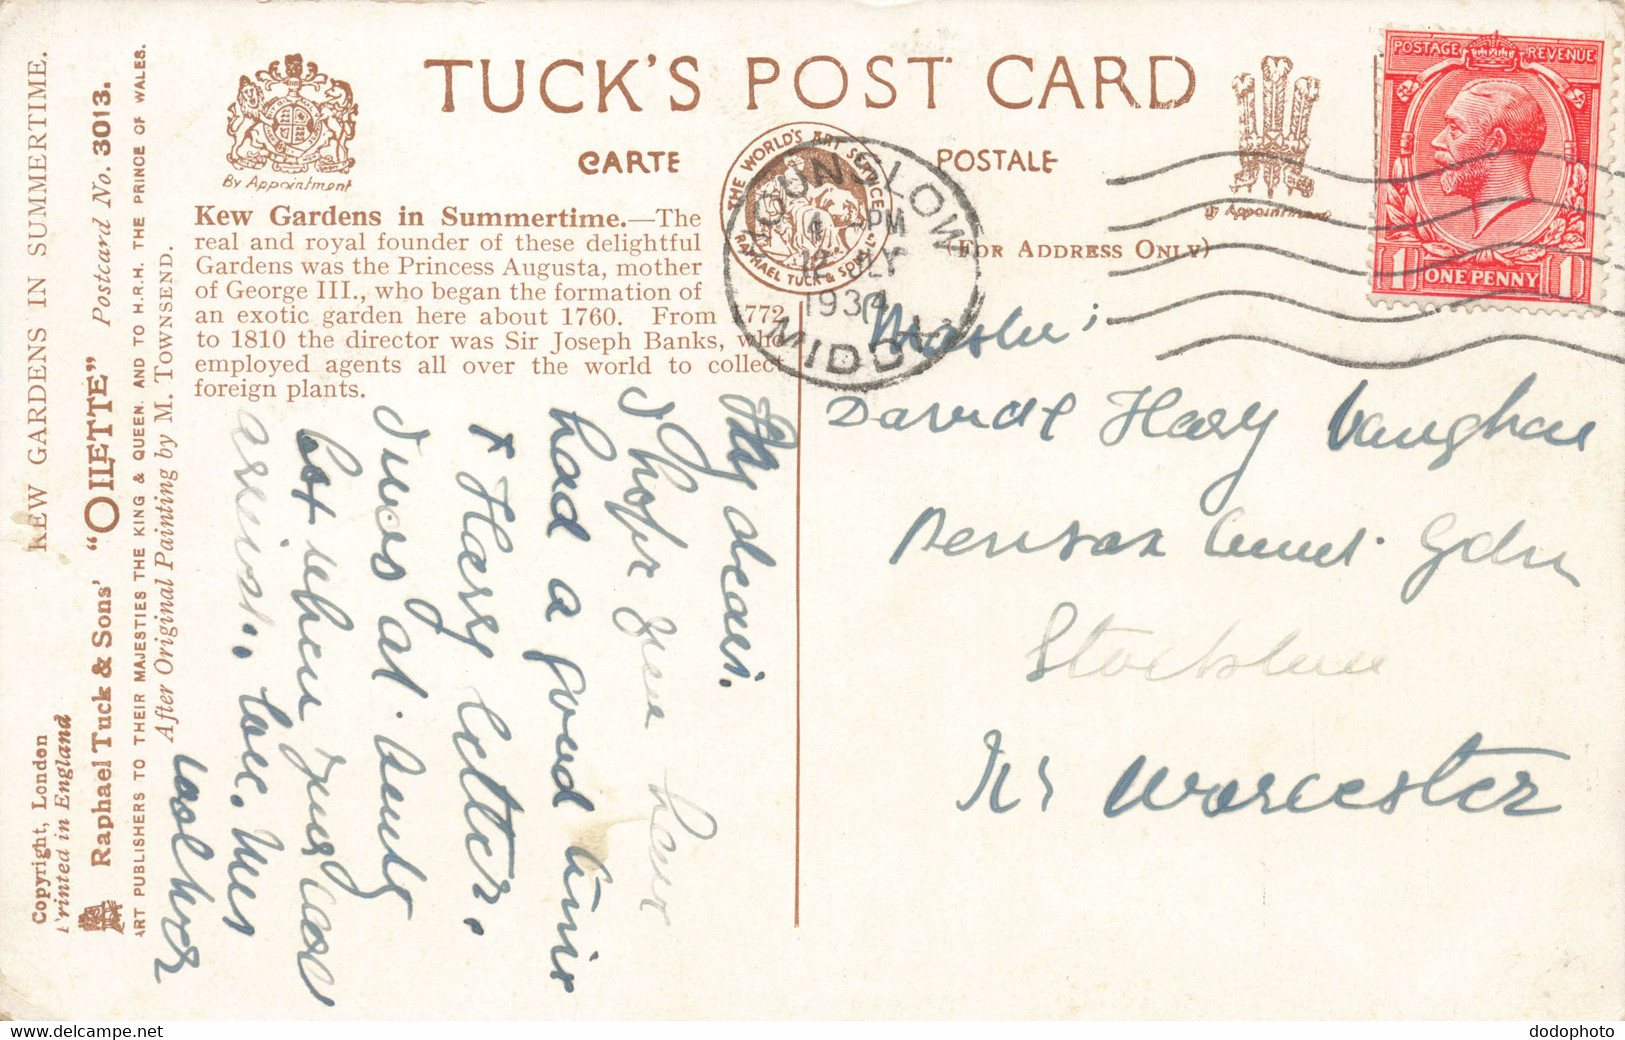 TUCK'S POST CARD
CARTE POSTALE
By Appointment
By Appointment
(FOR ADDRESS ONLY)
THE WORLD'S ART SERVICE
RAPHAEL TUCK & SONS Ld
POSTAGE REVENUE
1 ONE PENNY 1
HOUNSLOW
4 - PM
12 JLY
1934
MIDDX
Kew Gardens in Summertime.—The
real and royal founder of these delightful
Gardens was the Princess Augusta, mother
of George III., who began the formation of
an exotic garden here about 1760. From 1772
to 1810 the director was Sir Joseph Banks, who
employed agents all over the world to collect
foreign plants.
KEW GARDENS IN SUMMERTIME.
Copyright, London
Printed in England
Raphael Tuck & Sons' "OILETTE" Postcard No. 3013.
ART PUBLISHERS TO THEIR MAJESTIES THE KING & QUEEN, AND TO H.R.H. THE PRINCE OF WALES.
After Original Painting by M. TOWNSEND.
My dear.
I hope you
had a good
& Harry letter.
I was at
but when your
love.
Master
Harry Vaughan
Nr Worcester
dodophoto